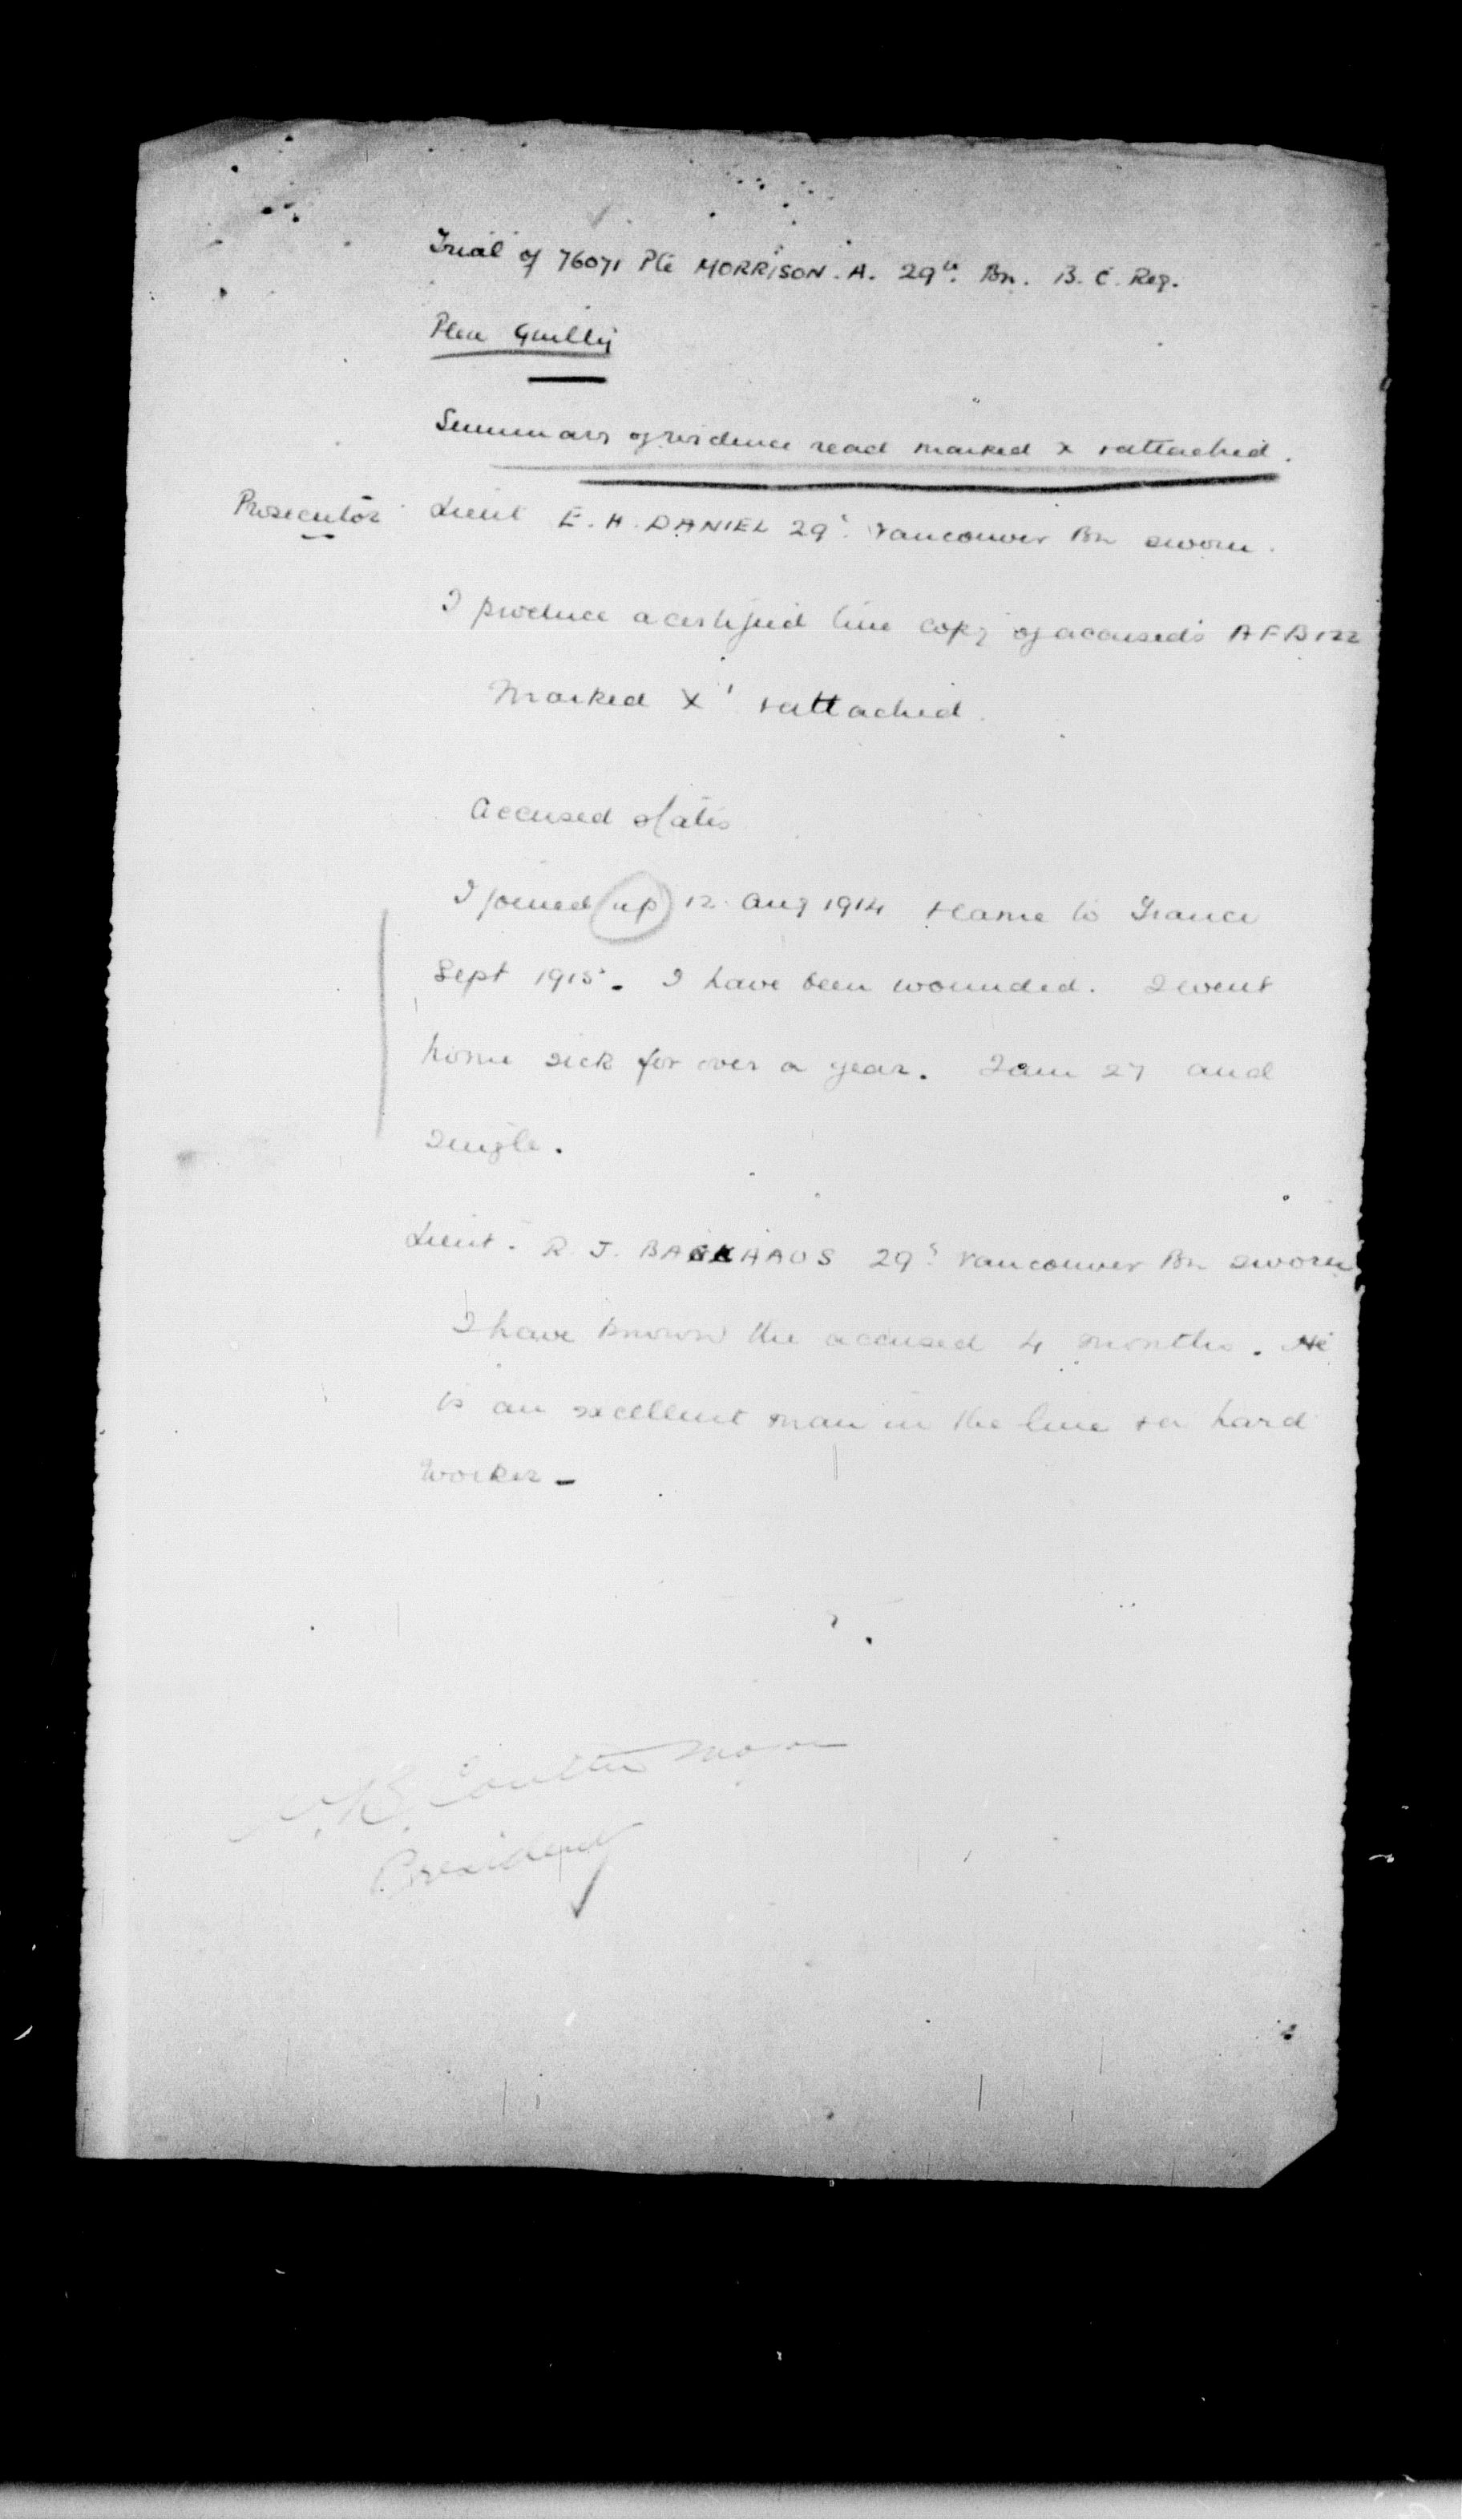 Trial of 76071 Pte MORRISON. A. 29th. Bn. B. C. Reg.
Plea Guilty
Summary of evidence read marked x & attached.
Prosecutor Lieut E. H. DANIEL 29th. Vancouver Bn sworn.
I produce a certified true copy of accused's A F B 122
Marked X' & attached.
Accused states
I joined up 12 Aug 1914 & came to France
Sept 1915. I have been wounded. I went
home sick for over a year. I am 27 and
single.
Lieut. R. J. BACKHAUS 29th Vancouver Bn sworn
I have known the accused 4 months. He
is an excellent man in the line & a hard
worker -
Coulter Major
President